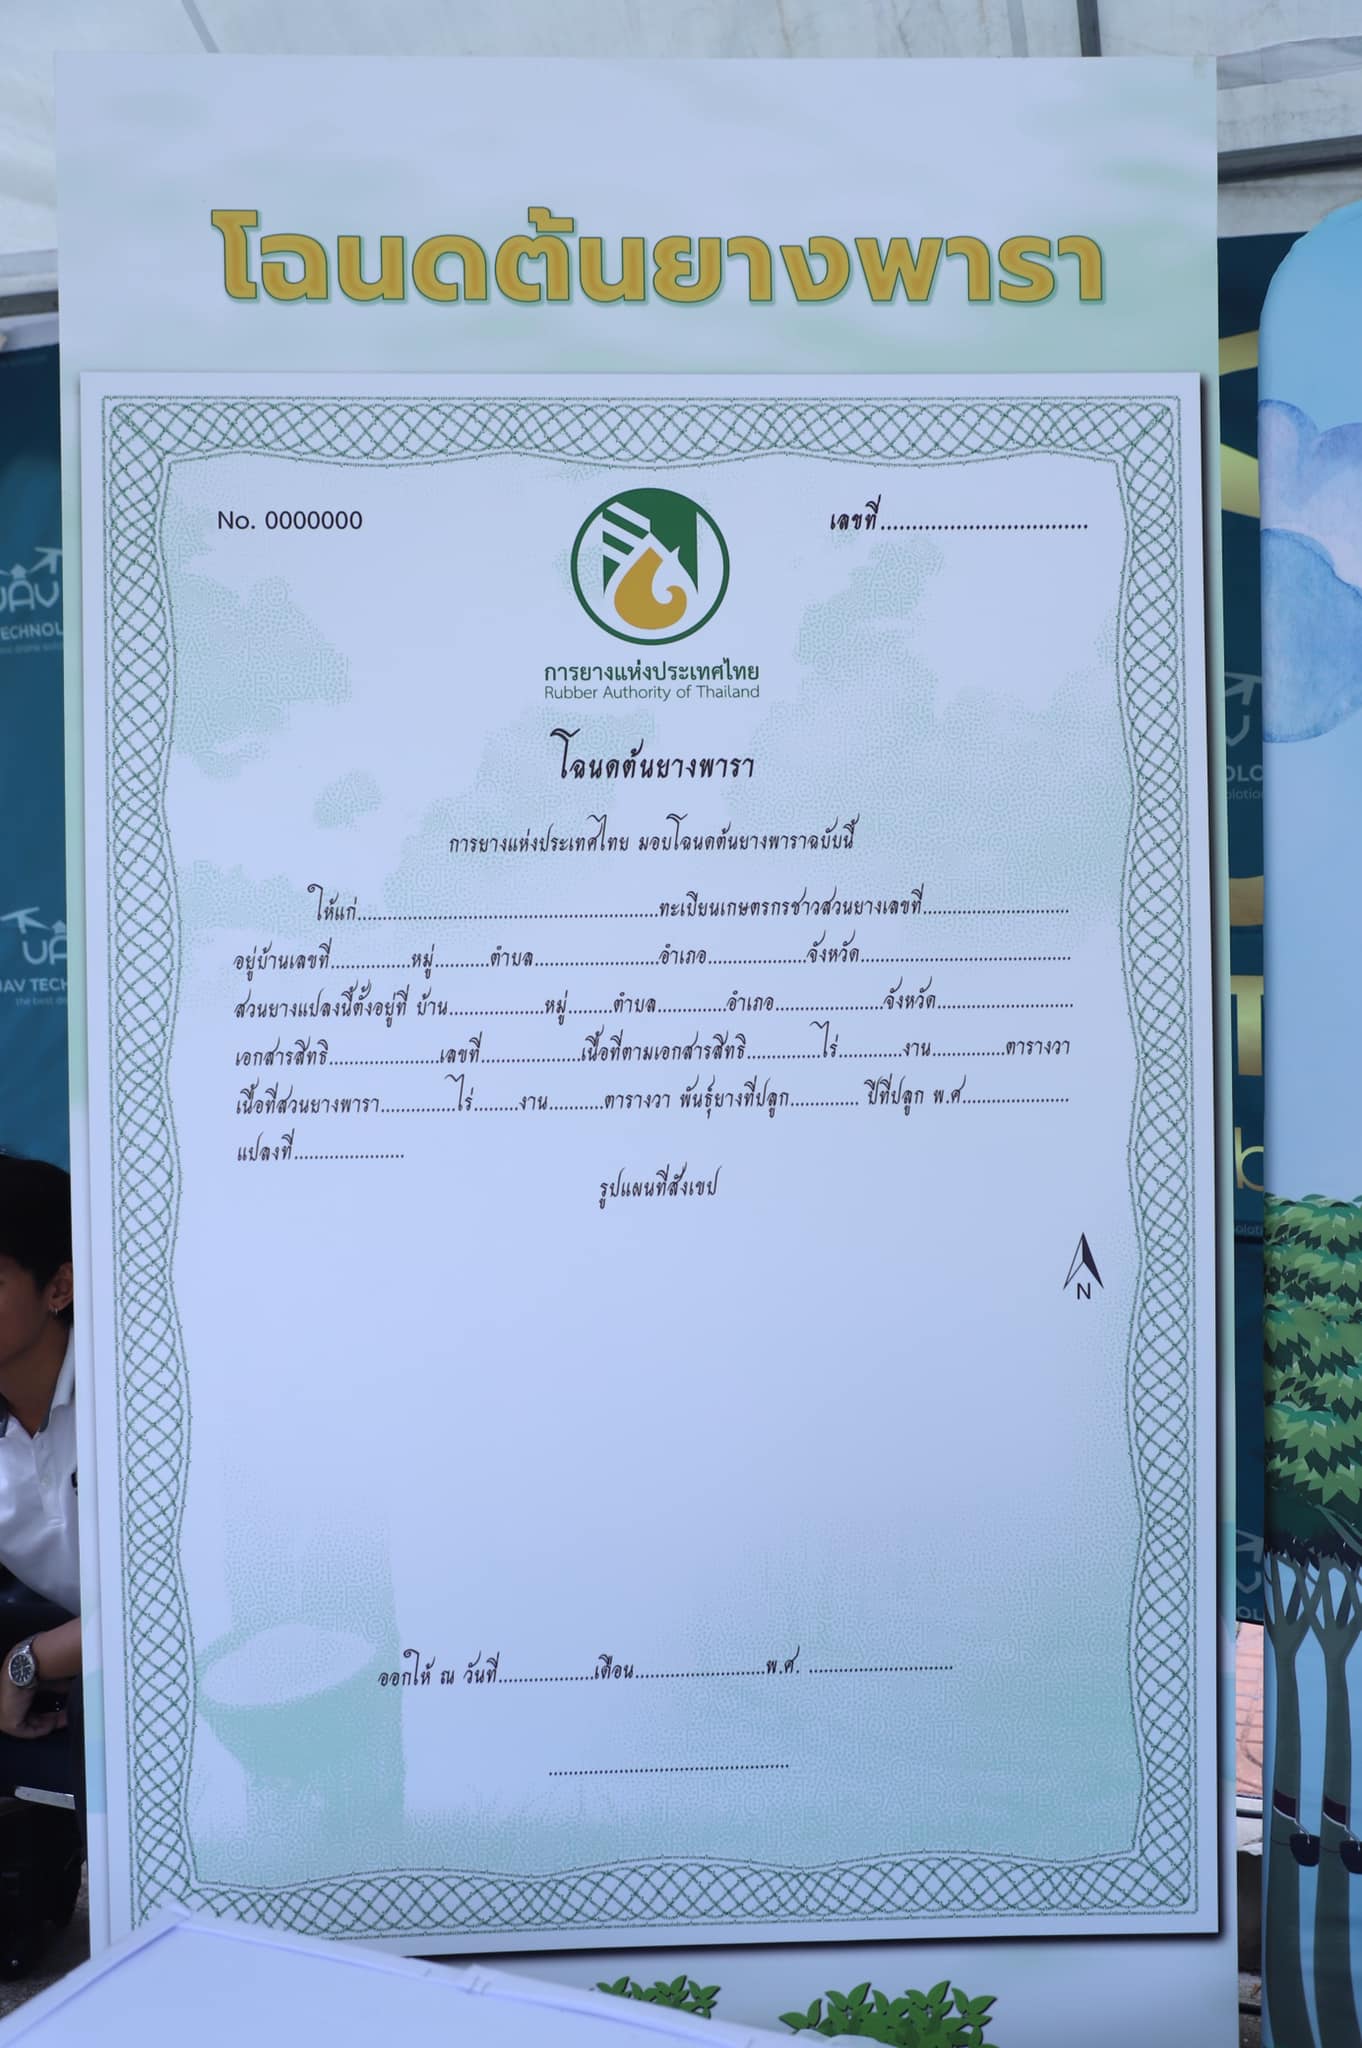 โฉนดต้นยางพารา
No. 0000000
เลขที่.................................
การยางแห่งประเทศไทย
Rubber Authority of Thailand
โฉนดต้นยางพารา
การยางแห่งประเทศไทย มอบโฉนดต้นยางพาราฉบับนี้
ให้แก่............................................................ทะเบียนเกษตรกรชาวสวนยางเลขที่.............................
อยู่บ้านเลขที่................หมู่...........ตำบล.........................อำเภอ....................จังหวัด..........................................
สวนยางแปลงนี้ตั้งอยู่ที่ บ้าน...................หมู่.........ตำบล..............อำเภอ......................จังหวัด...........................
เอกสารสิทธิ......................เลขที่....................เนื้อที่ตามเอกสารสิทธิ...............ไร่.............งาน...............ตารางวา
เนื้อที่สวนยางพารา...............ไร่.........งาน...........ตารางวา พันธุ์ยางที่ปลูก.............. ปีที่ปลูก พ.ศ......................
แปลงที่......................
รูปแผนที่สังเขป
N
ออกให้ ณ วันที่...................เดือน..........................พ.ศ. .............................
................................................
UAV
TECHNOL